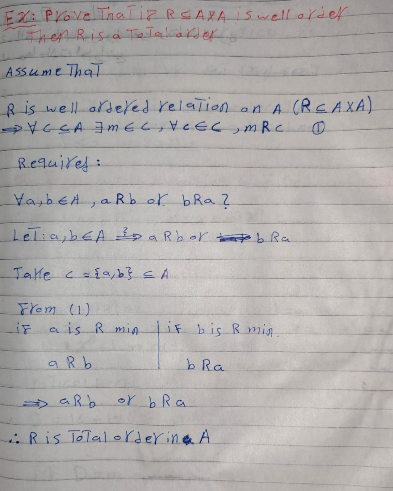 Ex: Prove That if R ⊆ A×A is well order
Then R is a Total order
Assume That
R is well ordered relation on A (R ⊆ A×A)
⇒ ∀ C ⊆ A ∃ m ∈ C, ∀ c ∈ C, m R c ①
Required:
∀ a, b ∈ A, a R b or b R a ?
Let: a, b ∈ A ?⇒ a R b or b R a
Take c = {a, b} ⊆ A
From (1)
if a is R min | if b is R min
a R b | b R a
⇒ a R b or b R a
∴ R is Total order in A